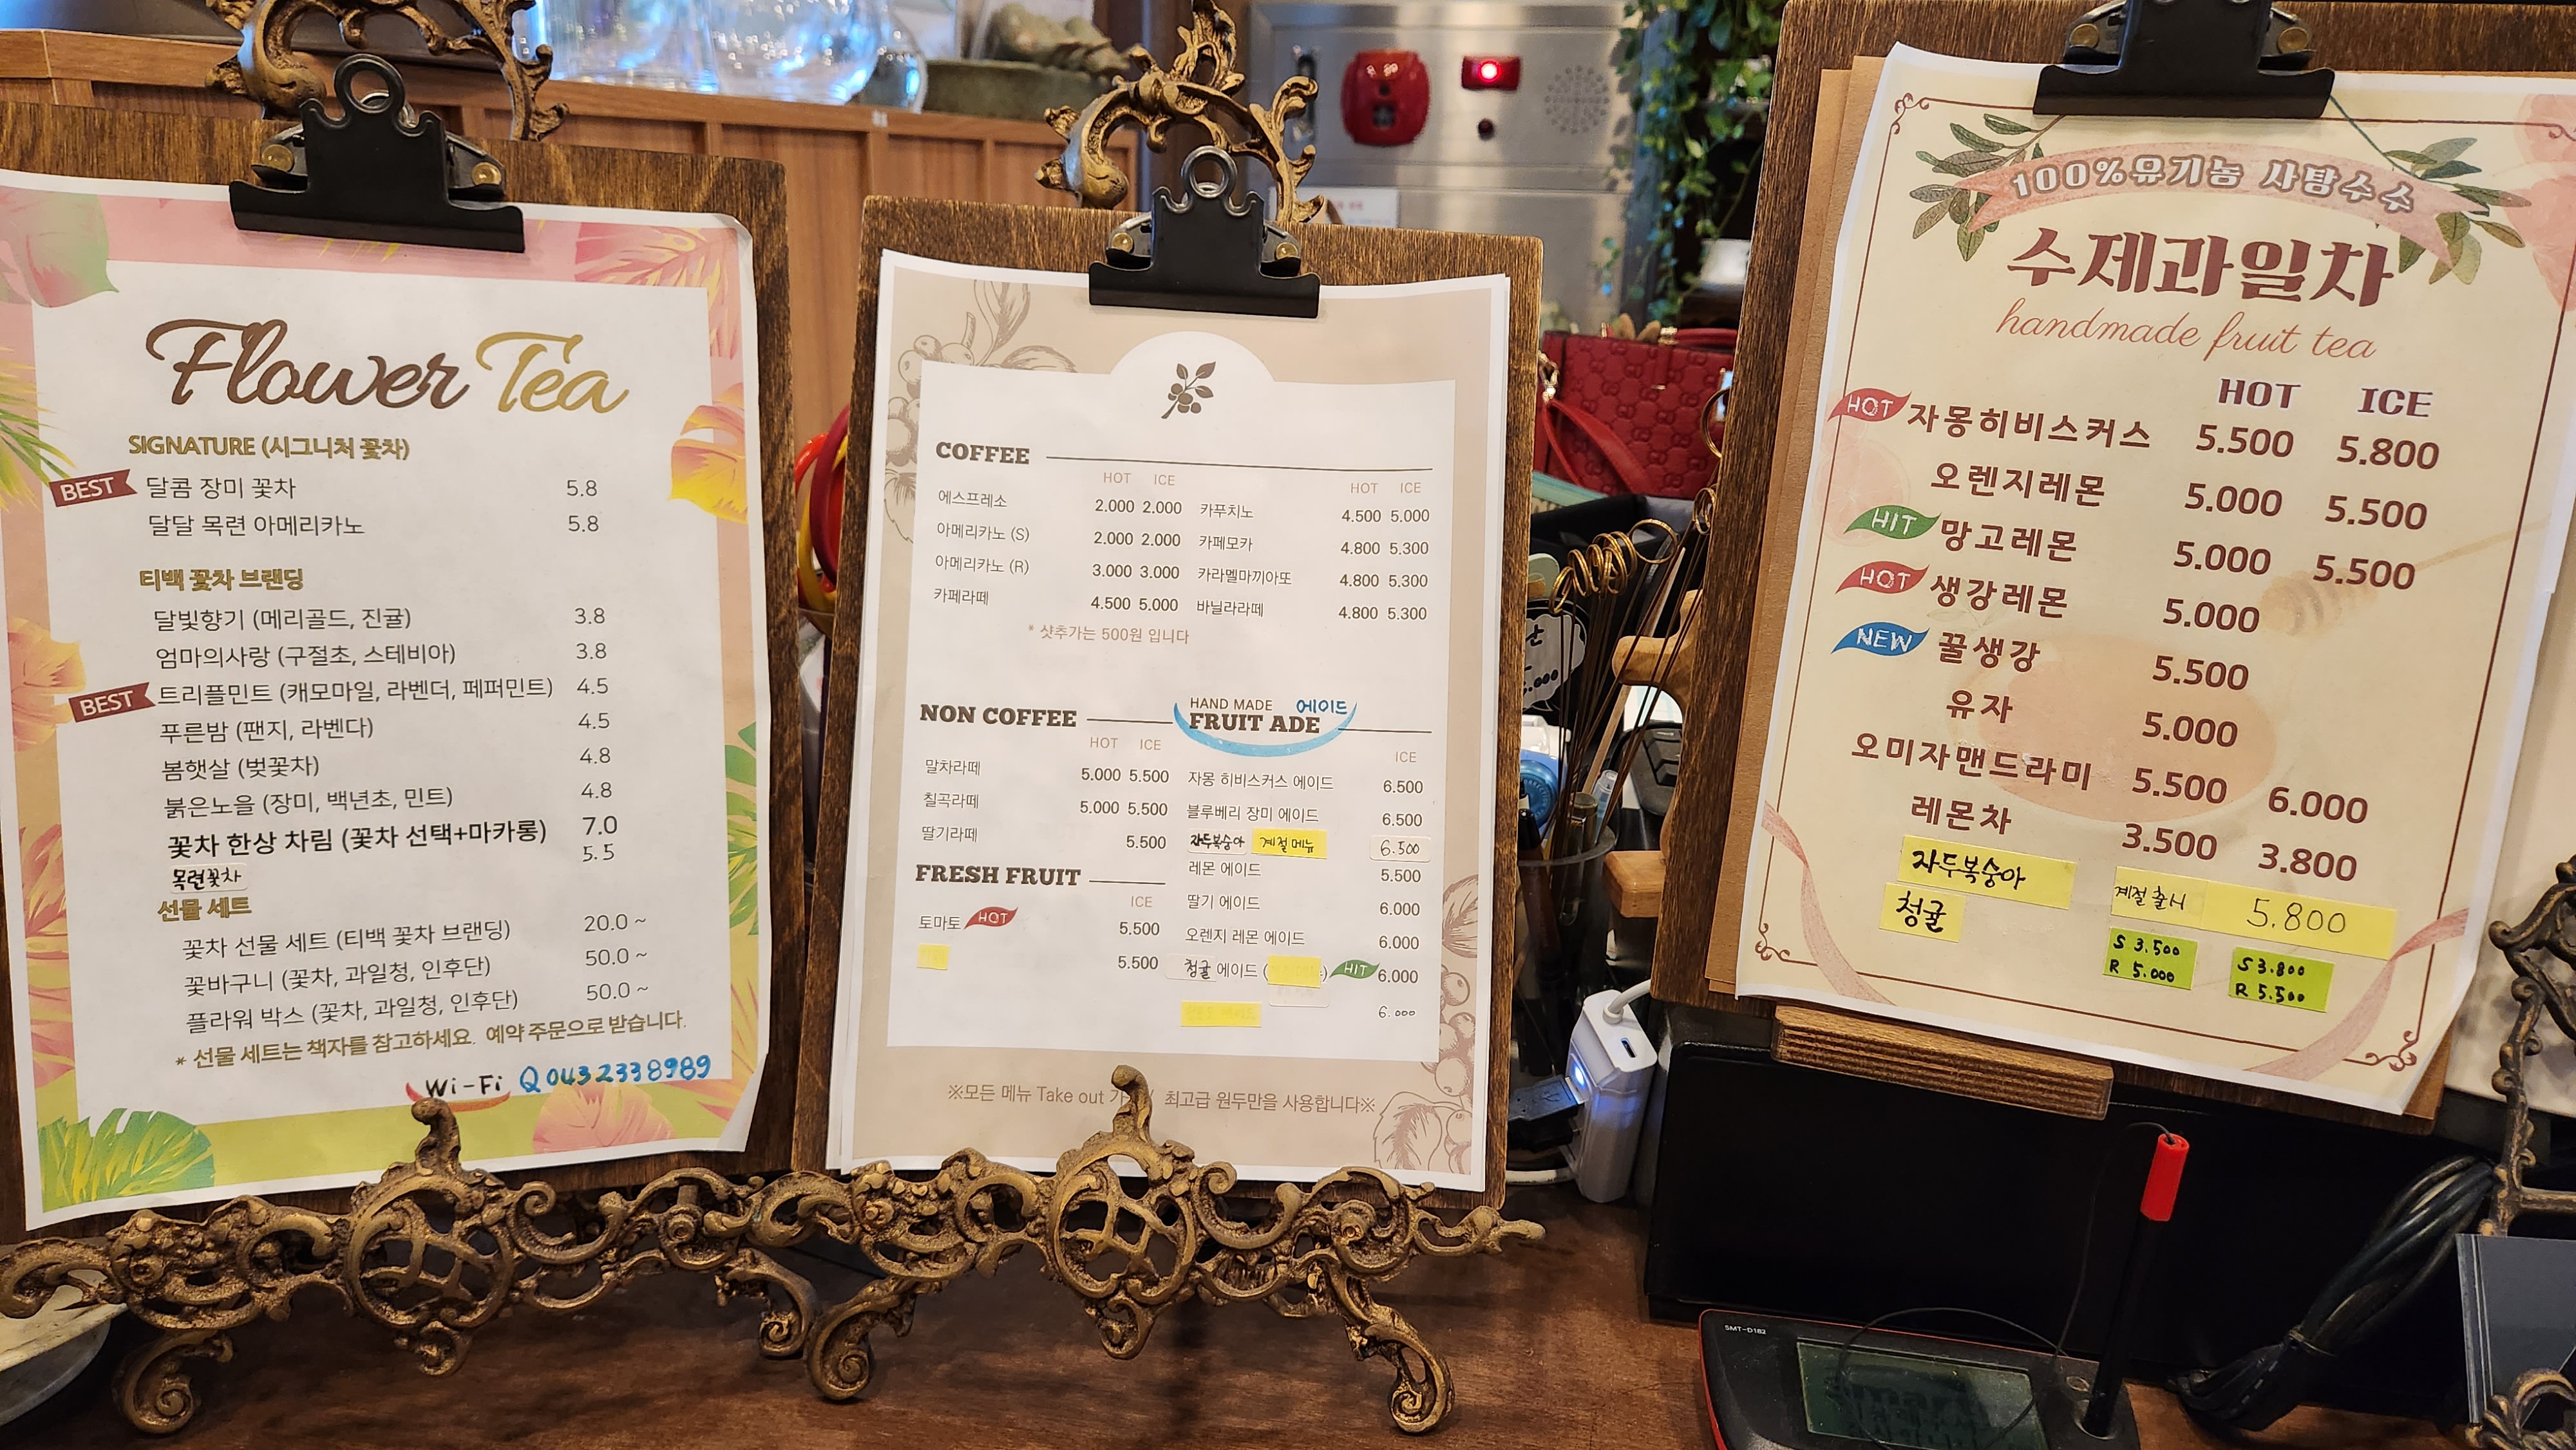 Flower Tea
SIGNATURE (시그니처 꽃차)
BEST 달콤 장미 꽃차 5.8
달달 목련 아메리카노 5.8
티백 꽃차 브랜딩
달빛향기 (메리골드, 진귤) 3.8
엄마의사랑 (구절초, 스테비아) 3.8
BEST 트리플민트 (캐모마일, 라벤더, 페퍼민트) 4.5
푸른밤 (팬지, 라벤다) 4.5
봄햇살 (벚꽃차) 4.8
붉은노을 (장미, 백년초, 민트) 4.8
꽃차 한상 차림 (꽃차 선택+마카롱) 7.0
목련꽃차 5.5
선물 세트
꽃차 선물 세트 (티백 꽃차 브랜딩) 20.0 ~
꽃바구니 (꽃차, 과일청, 인후단) 50.0 ~
플라워 박스 (꽃차, 과일청, 인후단) 50.0 ~
* 선물 세트는 책자를 참고하세요. 예약 주문으로 받습니다.
Wi-Fi Q0432338989
COFFEE
HOT ICE
에스프레소 2.000 2.000
아메리카노 (S) 2.000 2.000
아메리카노 (R) 3.000 3.000
카페라떼 4.500 5.000
HOT ICE
카푸치노 4.500 5.000
카페모카 4.800 5.300
카라멜마끼아또 4.800 5.300
바닐라라떼 4.800 5.300
* 샷추가는 500원 입니다
NON COFFEE
HOT ICE
말차라떼 5.000 5.500
칠곡라떼 5.000 5.500
딸기라떼 5.500
FRESH FRUIT
ICE
토마토 HOT 5.500
5.500
HAND MADE 에이드
FRUIT ADE
ICE
자몽 히비스커스 에이드 6.500
블루베리 장미 에이드 6.500
자두복숭아 계절메뉴 6.500
레몬 에이드 5.500
딸기 에이드 6.000
오렌지 레몬 에이드 6.000
청귤 에이드 ( ) HIT 6.000
6.000
※모든 메뉴 Take out 최고급 원두만을 사용합니다※
100%유기농 사탕수수
수제과일차
handmade fruit tea
HOT ICE
HOT 자몽히비스커스 5.500 5.800
오렌지레몬 5.000 5.500
HIT 망고레몬 5.000 5.500
HOT 생강레몬 5.000
NEW 꿀생강 5.500
유자 5.000
오미자맨드라미 5.500 6.000
레몬차 3.500 3.800
자두복숭아 계절출시 5.800
청귤 S 3.500 S 3.800
R 5.000 R 5.500
SMT-D182